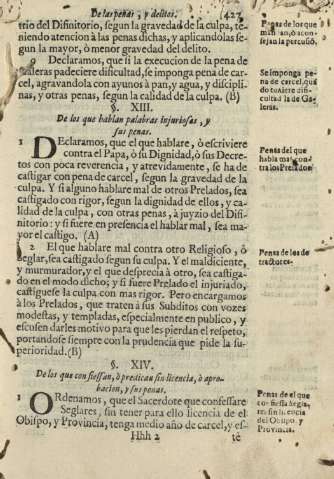 De las penas, y delitos. 427
trio del Difinitorio, segun la gravedad de la culpa, te-
niendo atencion à las penas dichas, y aplicandolas se-
gun la mayor, ò menor gravedad del delito.
Declaramos, que si la execucion de la pena de
Galeras padeciere dificultad, se imponga pena de car-
cel, agravandola con ayunos à pan, y agua, y discipli-
nas, y otras penas, segun la calidad de la culpa. (B)
§. XIII.
De los que hablan palabras injuriosas, y
sus penas.
1 DEclaramos, que el que hablare, ò escriviere
contra el Papa, ò su Dignidad, ò sus Decre-
tos con poca reverencia, y atrevidamente, se ha de
castigar con pena de carcel, segun la gravedad de la
culpa. Y si alguno hablare mal de otros Prelados, sea
castigado con rigor, segun la dignidad de ellos, y ca-
lidad de la culpa, con otras penas, à juyzio del Difi-
nitorio: y si fuere en presencia el hablar mal, sea ma-
yor el castigo. (A)
2 El que hablare mal contra otro Religioso, ò
Seglar, sea castigado segun su culpa. Y el maldiciente,
y murmurador, y el que desprecia à otro, sea castiga-
do en el modo dicho; y si fuere Prelado el injuriado,
castiguese la culpa con mas rigor. Pero encargamos
à los Prelados, que traten à sus Subditos con vozes
modestas, y templadas, especialmente en publico, y
escusen darles motivo para que les pierdan el respeto,
portandose siempre con la prudencia que pide la su-
perioridad. (B)
§. XIV.
De los que confiessan, ò predican sin licencia, ò apro-
bacion, y sus penas.
1 ORdenamos, que el Sacerdote que confessare
Seglares, sin tener para ello licencia de el
Obispo, y Provincia, tenga medio año de carcel, y es-
Hhh 2 té
Penas de los que
ò acon-
sejan la percusió.
Se imponga pe-
na de carcel, quã
do tuviere dificul-
tad la de Ga-
leras.
Penas del que
habla mal con-
tra los Prelados
Penas de los de-
tractores.
Penas de el que
confiessa Segla-
res sin licencia
del Obispo y
Provincia.